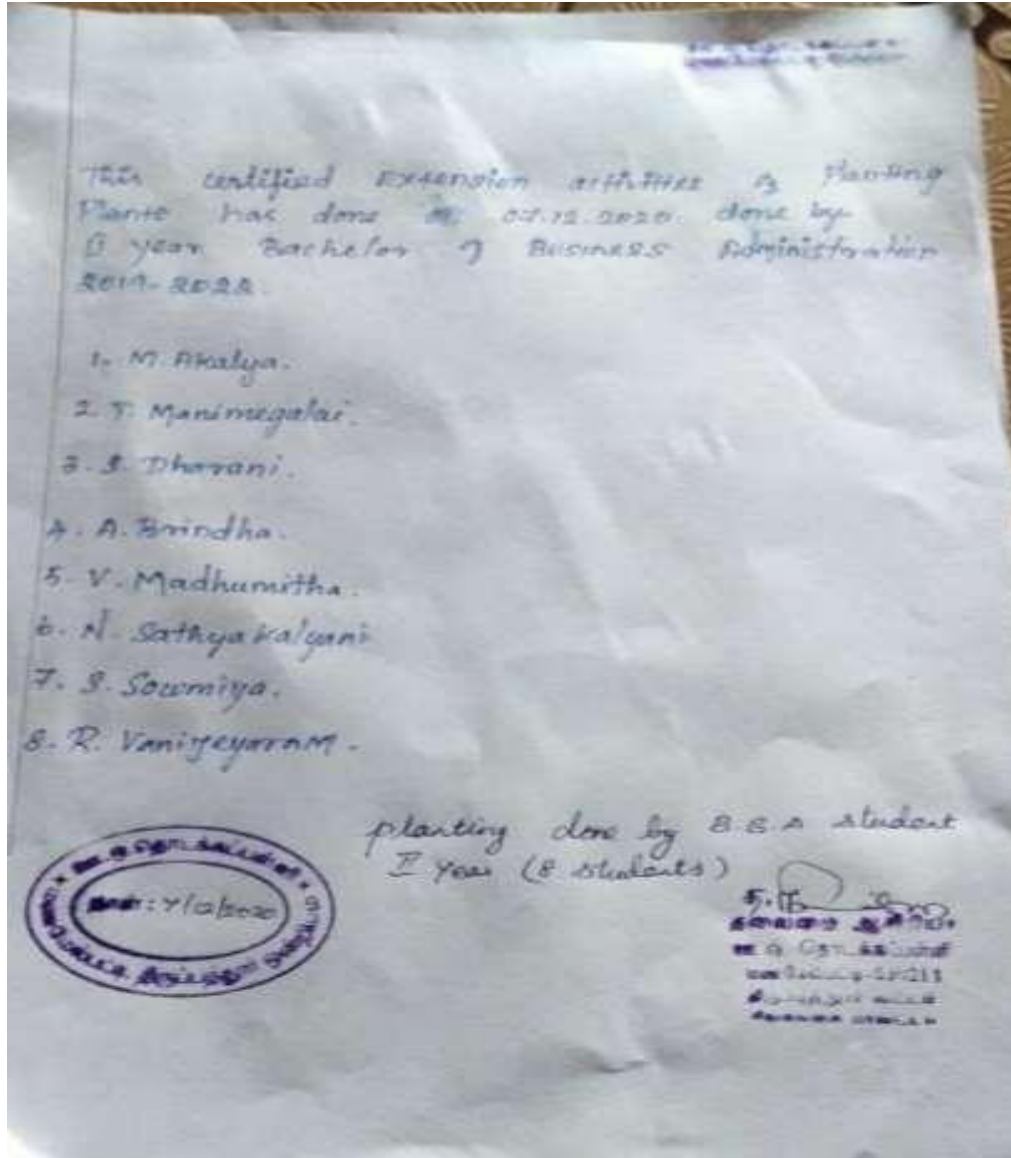 This certified Extension activities of Planting
Plants has done on 07.12.2020. done by
II year Bachelor of Business Administration
2019-2022.
1. M. Akalya.
2. T. Manimegalai.
3. S. Dharani.
4. A. Brindha.
5. V. Madhumitha.
6. N. Sathyakalyani
7. S. Sowmiya.
8. R. VanijeyaraM.
planting done by B.B.A student
II year (8 students)
ஊ.ஒ.தொடக்கப்பள்ளி
நாள்: 7/12/2020
தலைமை ஆசிரியர்
ஊ.ஒ. தொடக்கப்பள்ளி